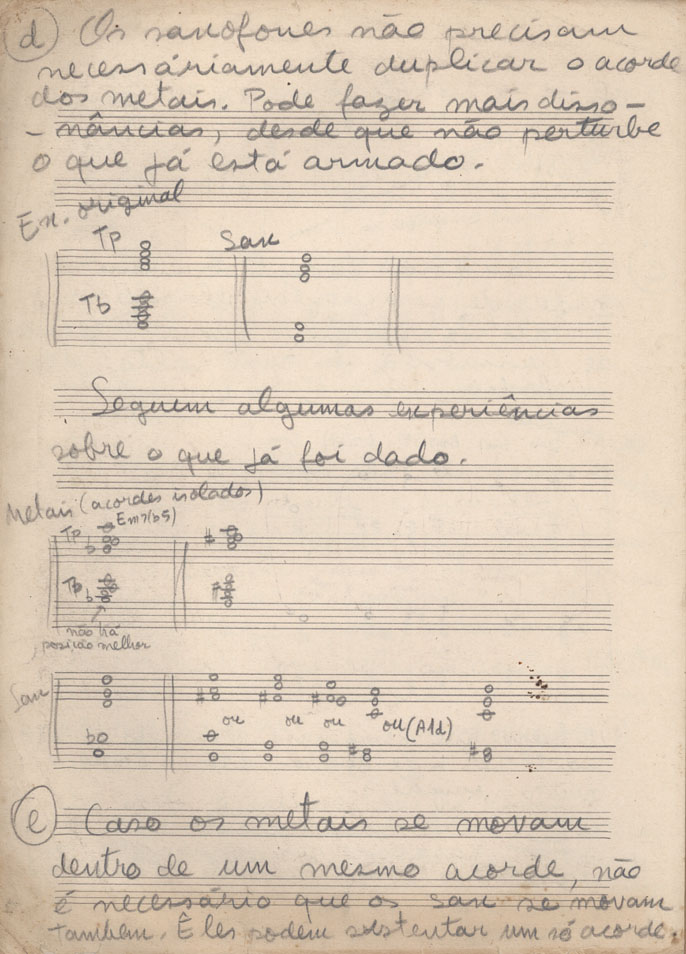 d) Os saxofones não precisam
necessáriamente duplicar o acorde
dos metais. Pode fazer mais disso-
-nâncias, desde que não perturbe
o que já está armado.
Ex. original
Tp Sax
Tb
Seguem algumas experiências
sobre o que já foi dado.
Metais (acordes isolados)
Tp Em7(b5)
Tb
não há
posição melhor
Sax
ou ou ou ou (Ald)
e) Caso os metais se movam
dentro de um mesmo acorde, não
é necessário que os sax se movam
tambem. Êles podem sustentar um só acorde.